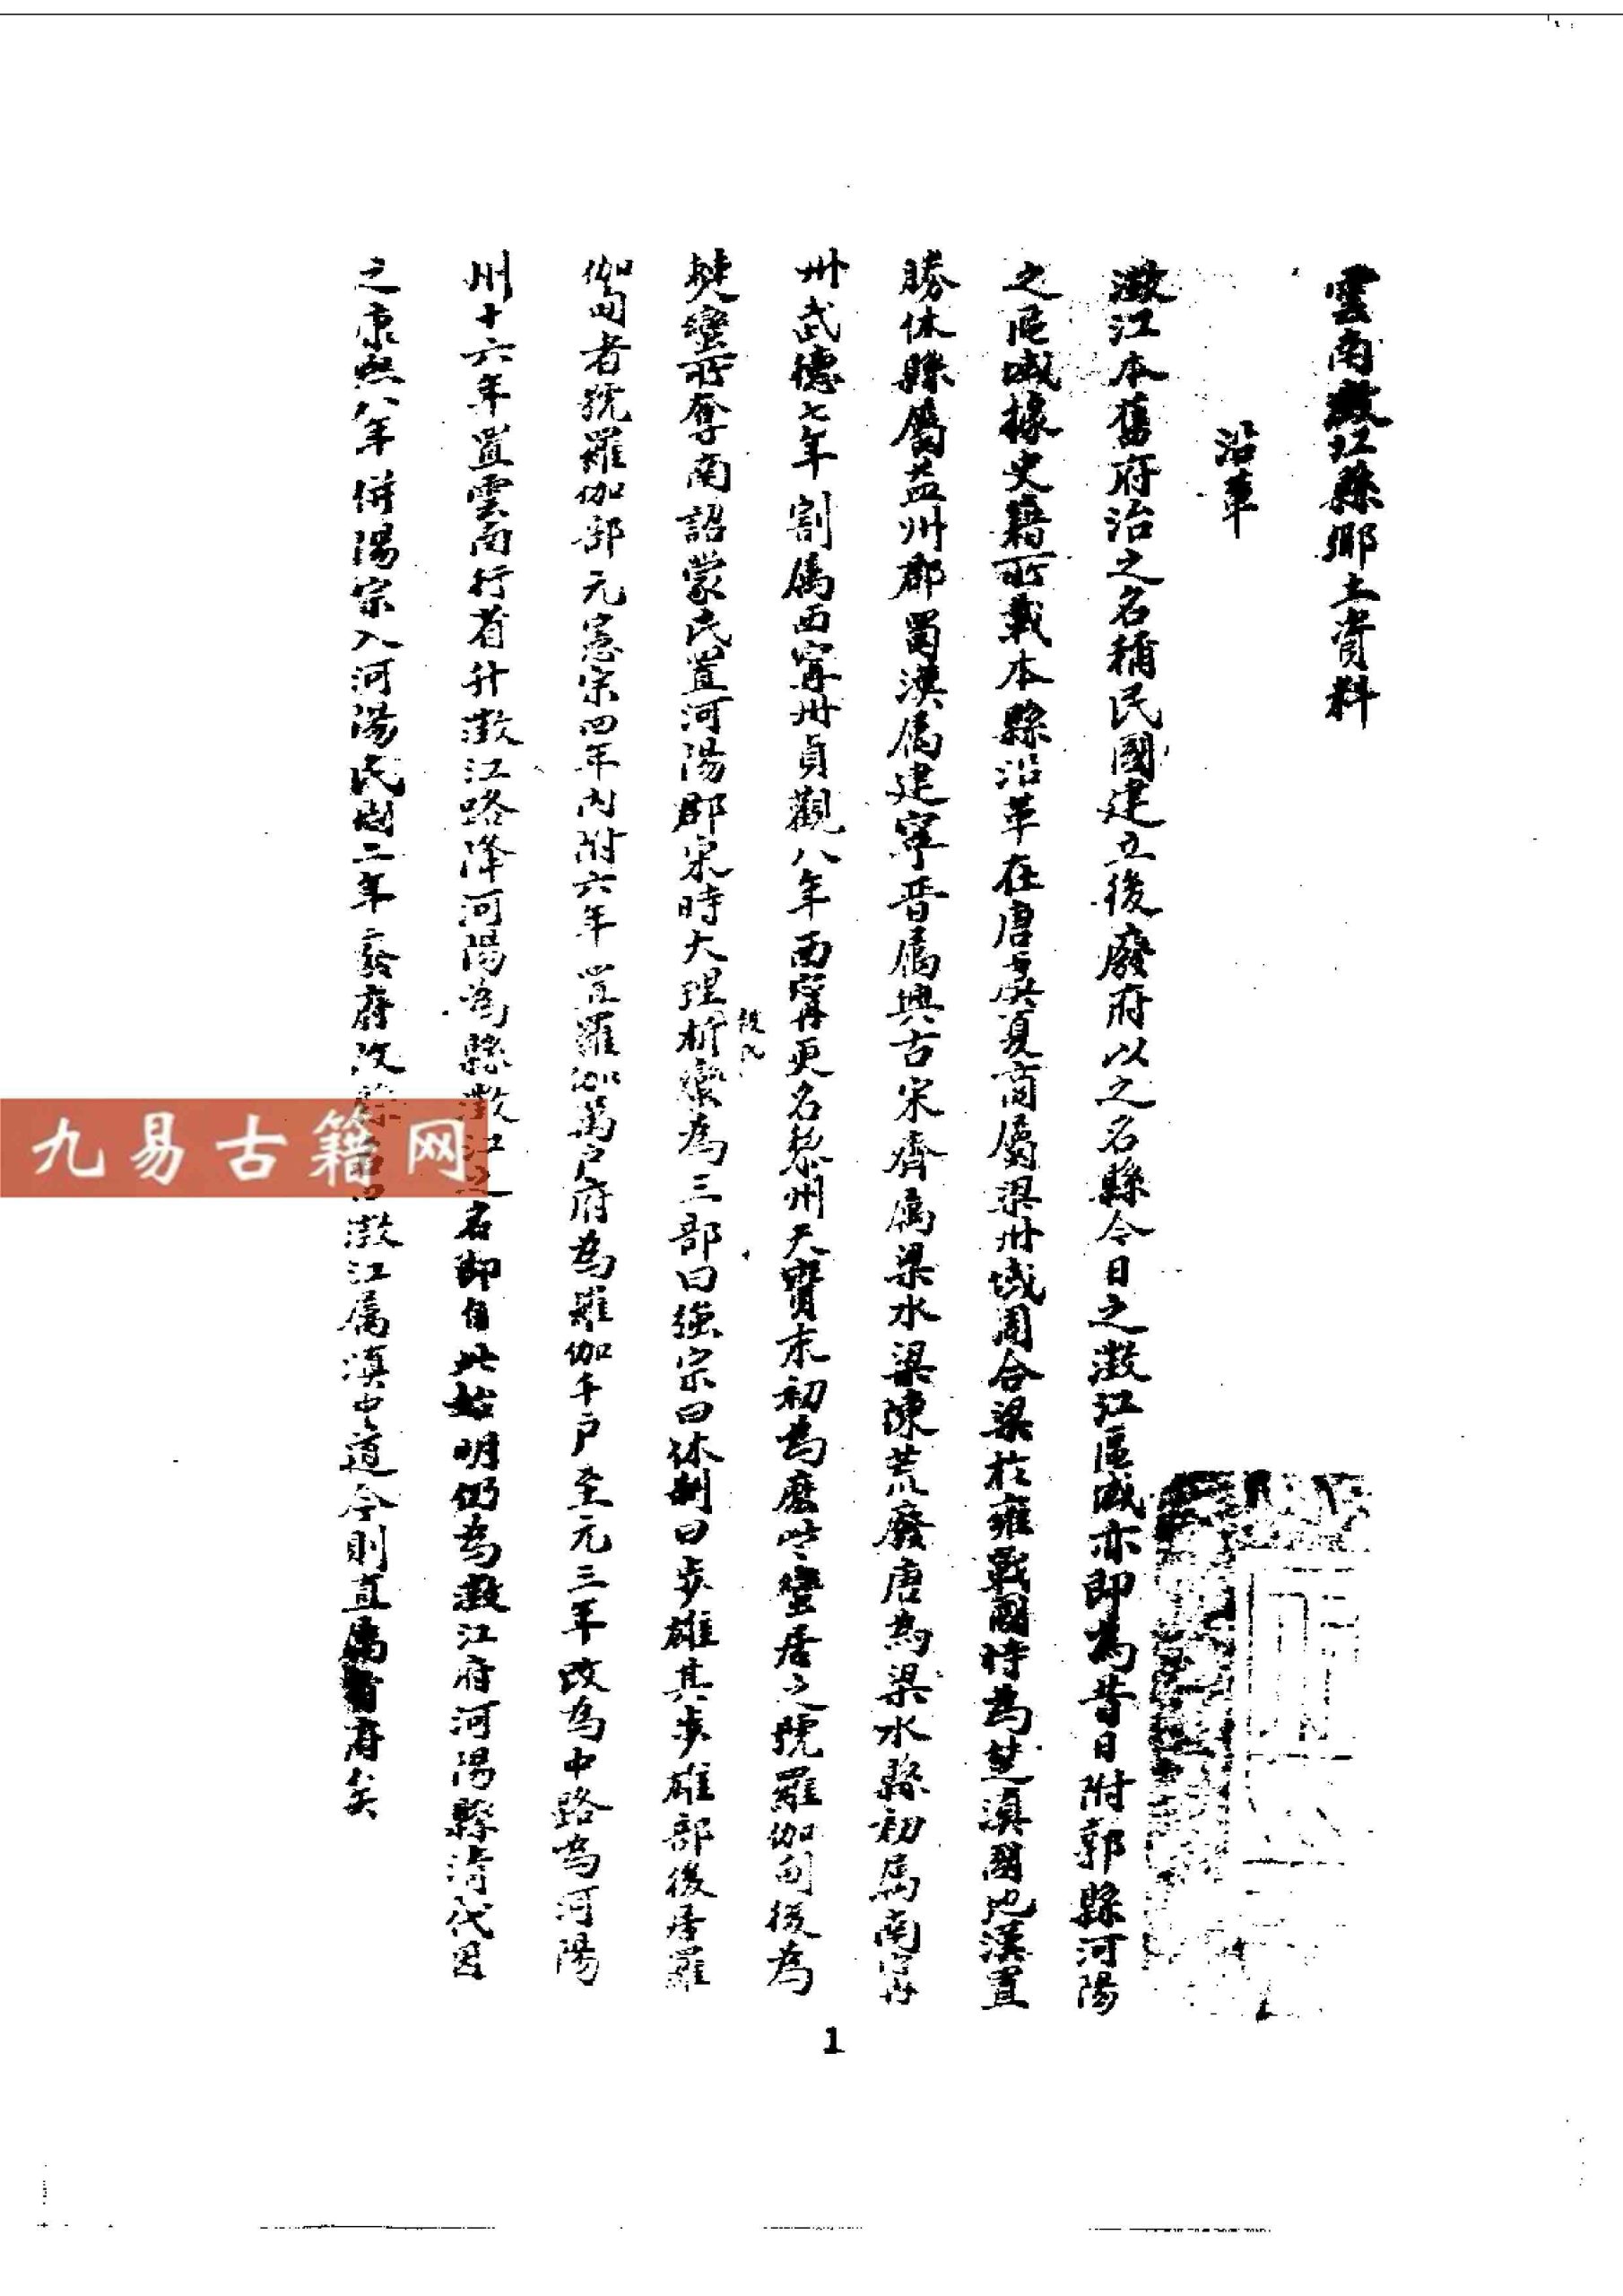 雲南澂江縣鄉土資料
沿革
澂江本舊府治之名稱民國建立後廢府以之名縣今日之澂江區域亦即為昔日附郭縣河陽
之區域據史籍所載本縣沿革在唐虞夏商屬梁州域周合梁於雍戰國時為楚滇國地漢置
勝休縣屬益州郡蜀漢屬建寧晉屬興古宋齊屬梁水梁陳荒廢唐為梁水縣初属南寧
州武德七年割属西寧州貞觀八年西寧更名黎州天寶末初為麽些蠻居之號羅伽甸後為
僰蠻所奪南詔蒙氏置河陽郡宋時大理段氏析蠻為三部曰强宗曰休制曰步雄其步雄部後居羅
伽甸者號羅伽部元憲宗四年內附六年置羅伽萬户府為羅伽千户至元三年改為中路為河陽
州十六年置雲南行省升澂江路降河陽為縣澂江之名即自此始明仍為澂江府河陽縣清代因
之康熙八年併陽宗入河陽民國二年廢府改縣名曰澂江属滇中道今則直属省府矣
九易古籍网
1